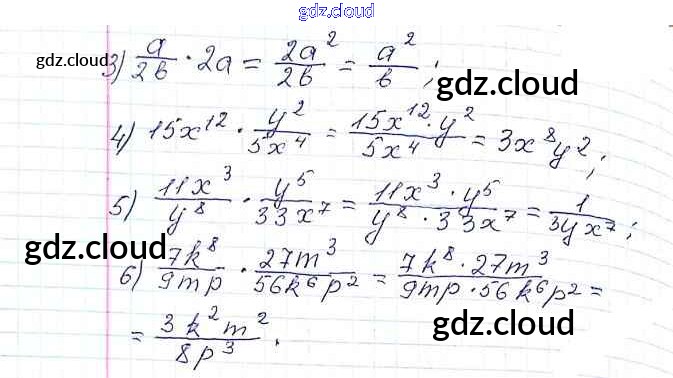 gdz.cloud
gdz.cloud
3) a/2b · 2a = 2a²/2b = a²/b ;
gdz.cloud
4) 15x¹² · y²/5x⁴ = 15x¹²·y²/5x⁴ = 3x⁸y² ;
5) 11x³/y⁸ · y⁵/33x⁷ = 11x³·y⁵/y⁸·33x⁷ = 1/3yx⁷ ;
gdz.cloud
gdz.cloud
6) 7k⁸/9mp · 27m³/56k⁶p² = 7k⁸·27m³/9mp·56k⁶p² =
= 3k²m²/8p³ .
gdz.cloud